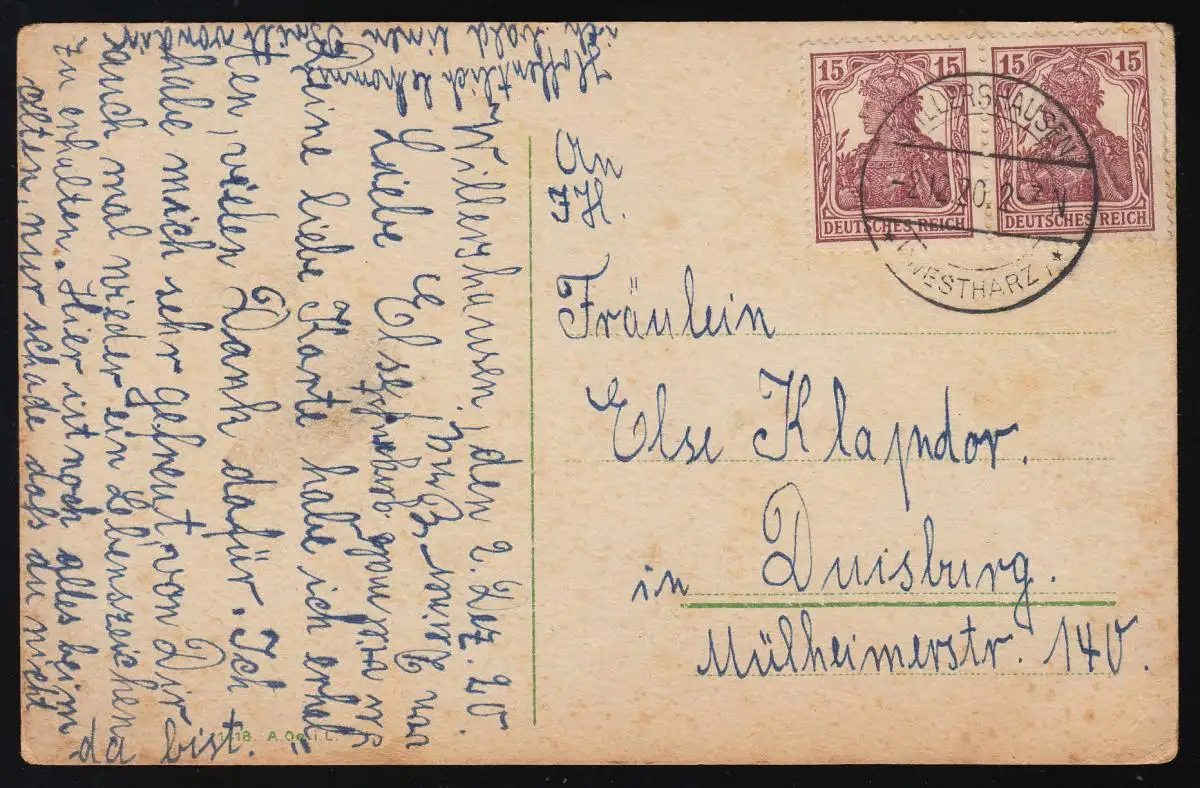 Willershausen, den 2. Dez. 20.
Liebe Else!
Deine liebe Karte habe ich erhal-
ten, vielen Dank dafür. Ich
habe mich sehr gefreut, von Dir
auch mal wieder ein Lebenszeichen
zu erhalten. Hier ist noch alles beim
alten, nur schade daß du nicht
da bist.
Hoffentlich bekomme
ich bald einen
Brief von dir
von Deiner
An
Fräulein
Else Klapdor.
in Duisburg.
Mülheimerstr. 140.
15 15
DEUTSCHES REICH
15 15
DEUTSCHES REICH
WILLERSHAUSEN
(WESTHARZ)